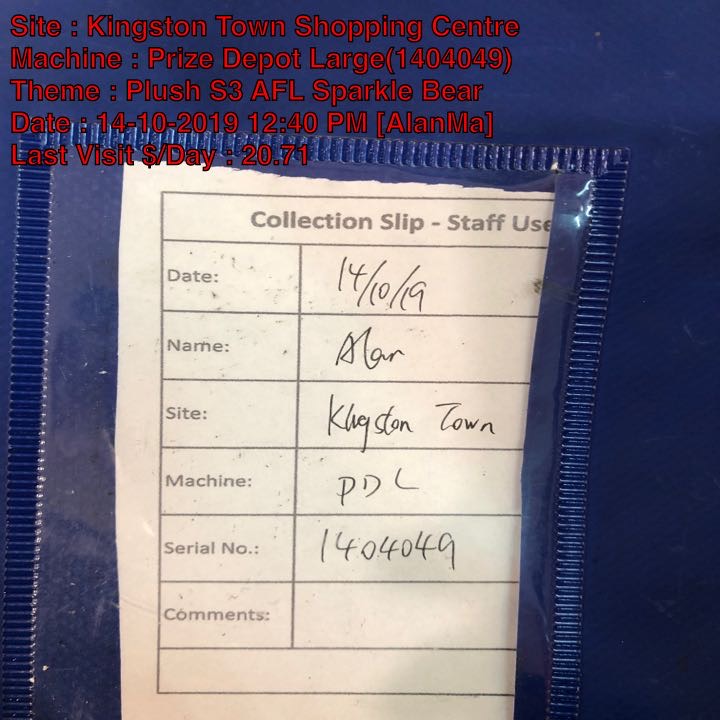 Site : Kingston Town Shopping Centre
Machine : Prize Depot Large(1404049)
Theme : Plush S3 AFL Sparkle Bear
Date : 14-10-2019 12:40 PM [AlanMa]
Last Visit $/Day : 20.71
Collection Slip - Staff Use
Date: 14/10/19
Name: Alan
Site: Kingston Town
Machine: PDL
Serial No.: 1404049
Comments: